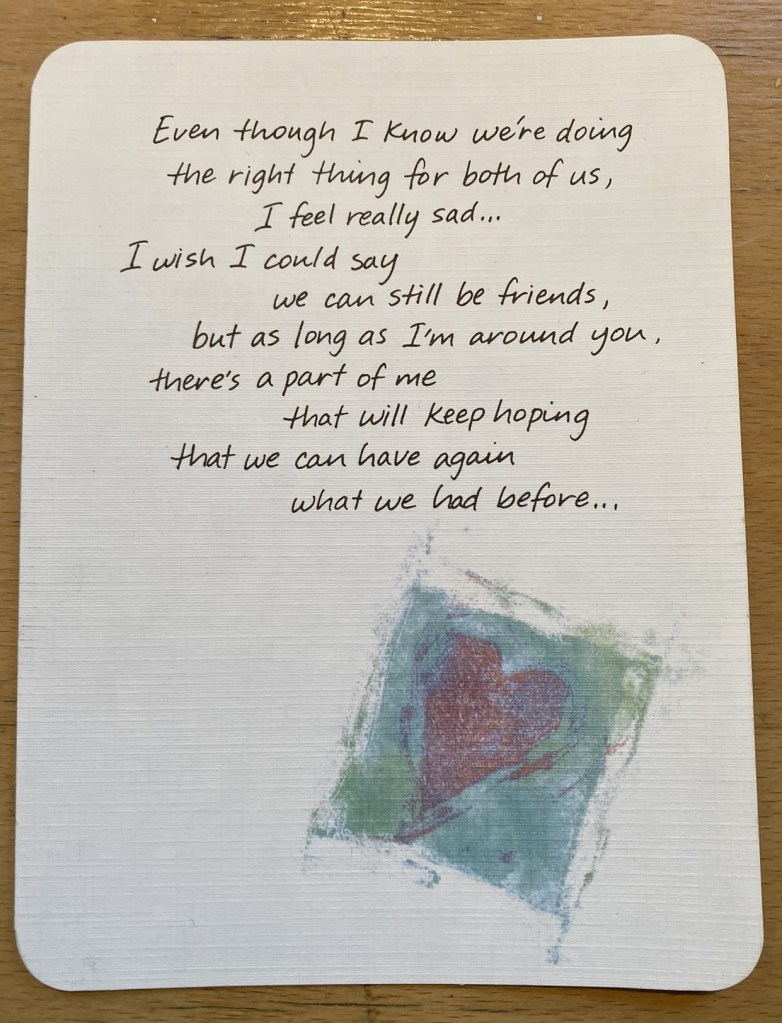 Even though I know we're doing
the right thing for both of us,
I feel really sad...
I wish I could say
we can still be friends,
but as long as I'm around you,
there's a part of me
that will keep hoping
that we can have again
what we had before...